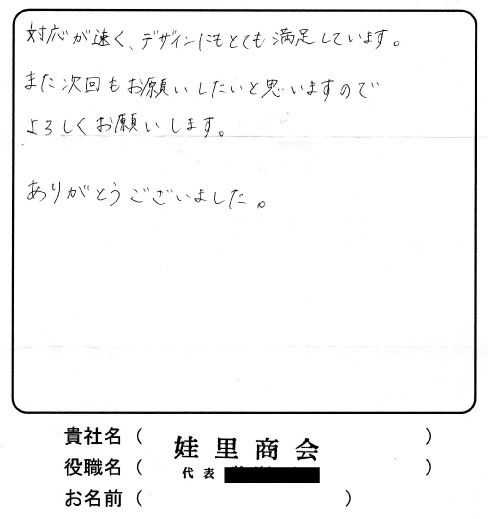 対応が速く、デザインにもとても満足しています。
また次回もお願いしたいと思いますので
よろしくお願いします。
ありがとうございました。
貴社名（ 娃里商会 ）
役職名（ 代表 ）
お名前（ ）